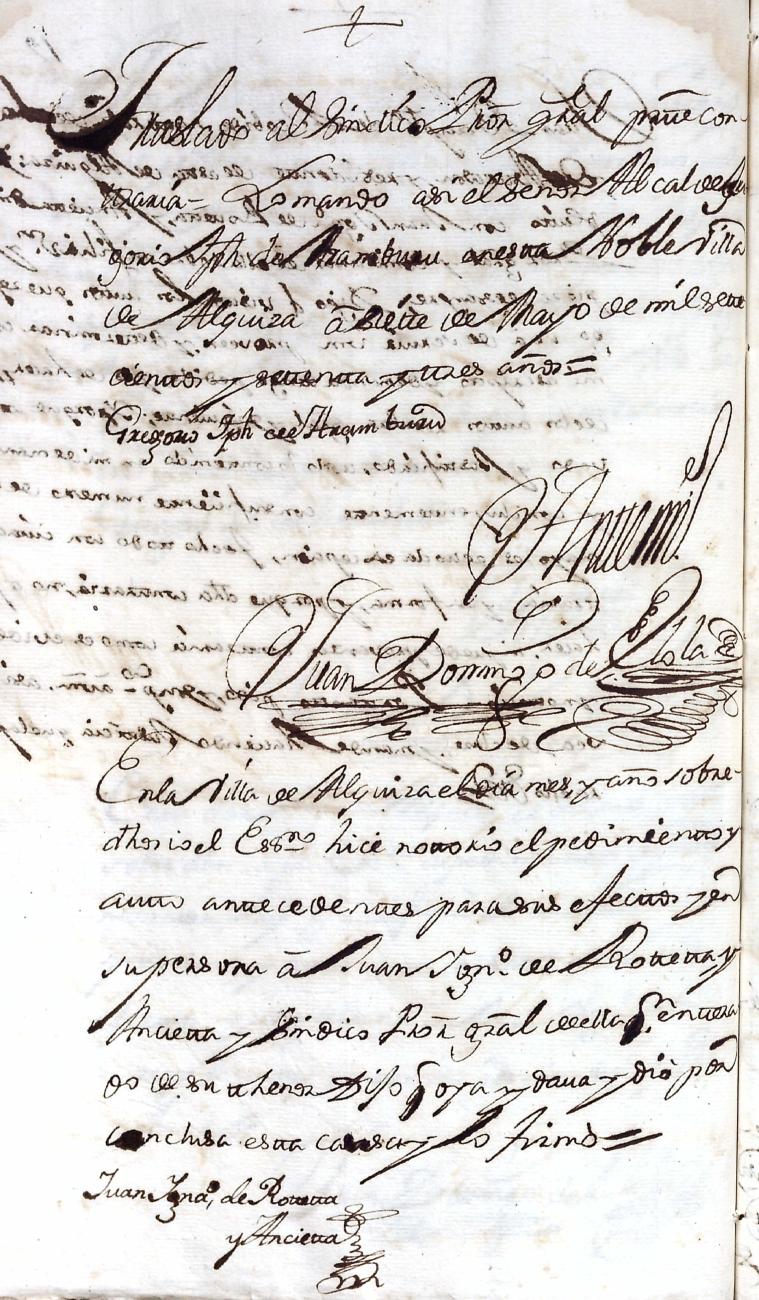 Traslado al Sindico Pror gral parte con-
traria = Lo mando asi el Señor Alcalde Gre
gorio Jph de Aramburu en esta Noble Villa
de Alquiza â siete de Mayo de mil sette
cientos y setenta y tres años =
Gregorio Jph de Aramburu
Antemi
Juan Domingo de Elola
En la Villa de Alquiza el dia mes, y año sobre-
dhos io el Essno hice notorio el pedimiento y
auto antecedentes para sus efectos y en
su persona â Juan Ignº de Rottetta y
Ancietta y Sindico Pror gral de ella qe entera
do de su thenor Dijo q oya y dava y diò por
conclusa esta causa y lo firmò =
Juan Ignaº, de Rottetta
y Ancietta